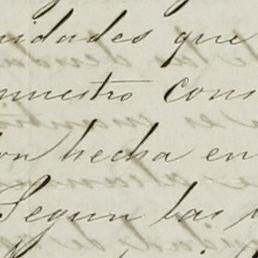 idades que
nuestro cons
on hecha en
Segun las